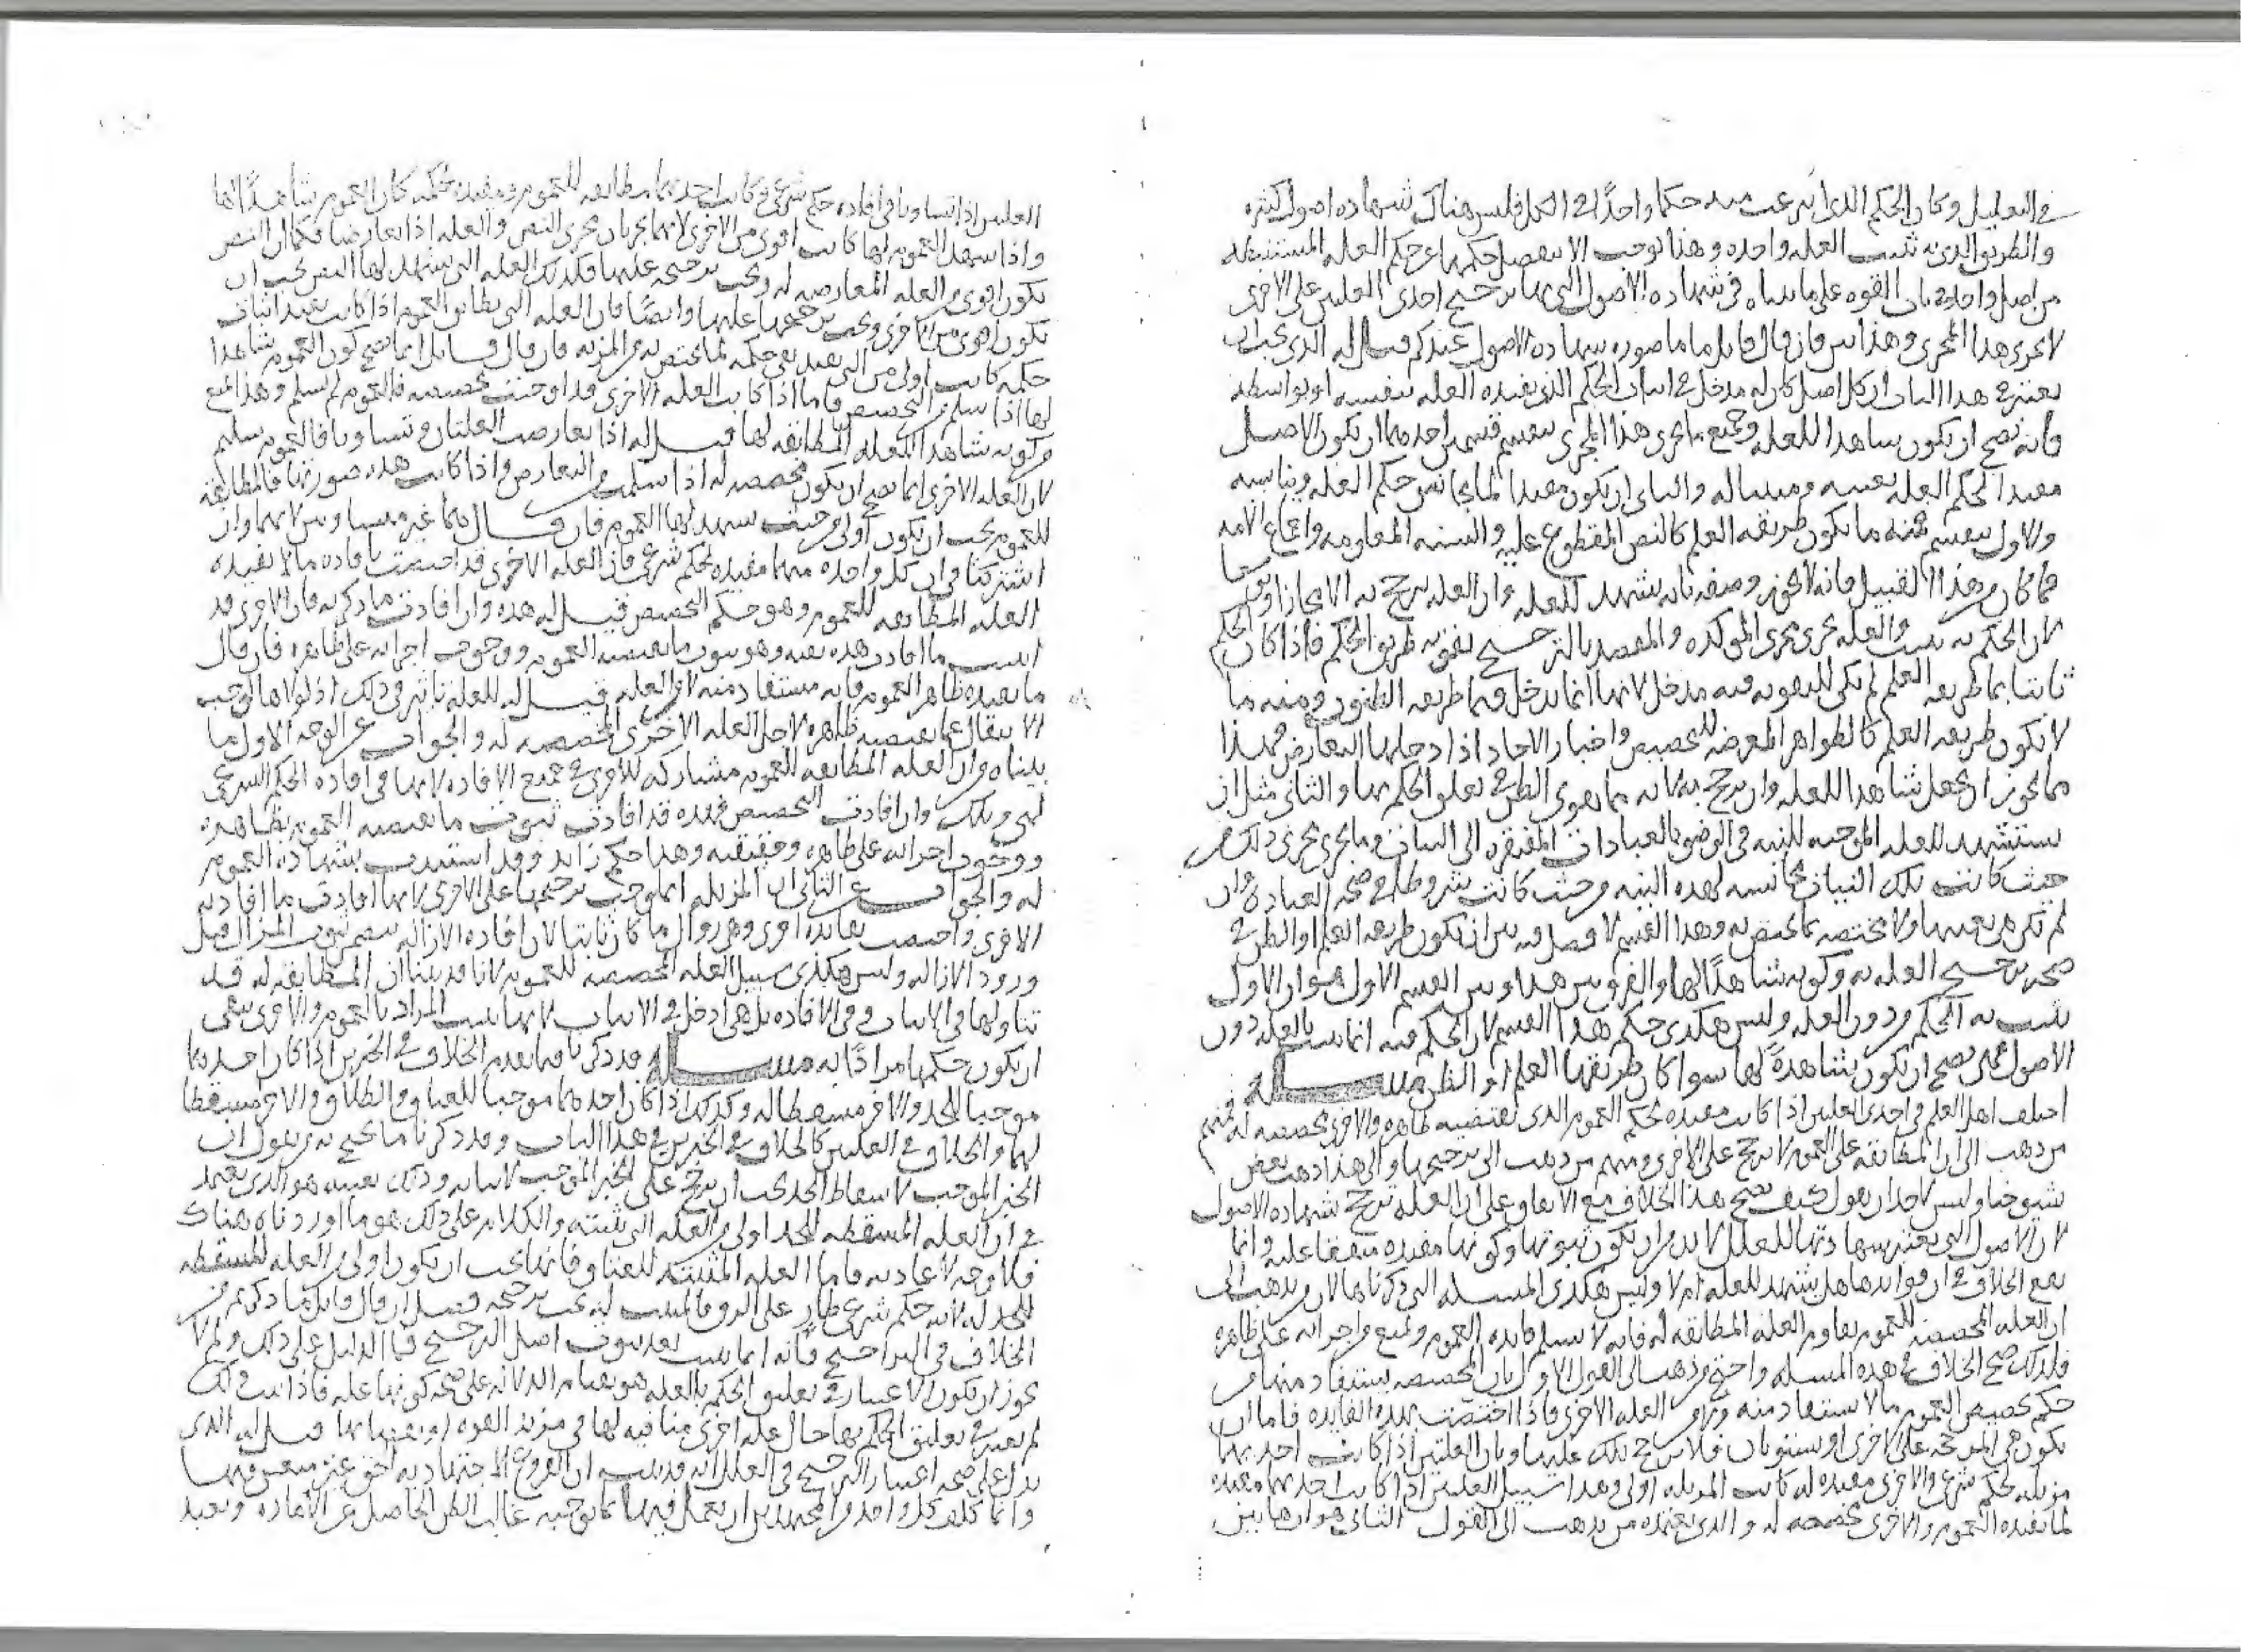 في التعليل وكان الحكم الذي حكما واحدًا في الكل فليس هناك شهاده اصول كثيره
والطريق الذي به تثبت العله واحده وهذا يوجب الا ينفصل حكمها عن حكم العله المستنبطه
من اصل واحد في باب القوه على ما بيناه في شهاده الاصول التي بها ترجيح احدى العلتين على الاخرى
لا يجري هذا المجرى وهذا بين فان قال قايل ما صوره شهاده الاصول عندكم قيل له الذي يجب ان
يعتبر في هذا الباب ان كل اصل كان له مدخل في اثبات الحكم الذي تفيده العله بنفسه او بواسطه
فانه يصح ان يكون شاهدا للعله وجميع ما يجري هذا المجرى ينقسم قسمين احدهما ان يكون الاصل
مفيدا لحكم العله بعينه ومثاله والثاني ان يكون مفيدا لما يجانس حكم العله ويناسبه
والاول ينقسم فمنه ما يكون طريقه العلم كالنص المقطوع عليه والسنه المعلومه واجماع الامه
فما كان من هذا القبيل فانه لا يجوز وصفه بانه يشهد للعله وان العله ترجح به الا مجازا
لان الحكم به يثبت والعله تجري مجرى الموكده والمقصد بالترجيح تقويه طريق الحكم فاذا كان الحكم
ثابتا بما طريقه العلم لم يكن للتقويه فيه مدخل لانها انما تدخل فيما طريقه الظنون ومنه ما
لا يكون طريقه العلم كالظواهر المعرضه للتخصيص واخبار الاحاد اذا دخلها التعارض فهذا
مما يجوز ان يجعل شاهدا للعله وان ترجح به لانه مما يقوي الظن في تعلق الحكم بها والثاني مثل ان
يستشهد للعله الموجبه للنيه في الوضو بالعبادات المفتقره الى النيات وما يجري مجرى ذلك من
حيث كانت تلك النيات مجانسه لهذه النيه ومن حيث كانت شروطا في صحه العباده وان
لم تكن هي بعينها ولا مختصه بما تختص به وهذا القسم لا فصل فيه بين ان يكون طريقه العلم او الظن في
صحه ترجيح العله به وكونه شاهدًا لها والفرق بين هذا وبين القسم الاول هو ان الاول
يثبت به الحكم من دون العله وليس هكذى حكم هذا القسم لان الحكم فيه انما يثبت بالعله دون
الاصول يصح ان تكون شاهدهً لها سوا كان طريقها العلم او الظن مسله
اختلف اهل العلم في احدى العلتين اذا كانت مفيده لحكم العموم الذي يقتضيه ظاهره والاخرى مخصصه له فمنهم
من ذهب الى ان المطابقه للعموم لا ترجح على الاخرى ومنهم من ذهب الى ترجيحها والى هذا ذهب بعض
شيوخنا وليس لاحد ان يقول كيف يصح هذا الخلاف مع الاتفاق على ان العله ترجح بشهاده الاصول
لان الاصول التي يعتبر بشهادتها للعلل لا بد من ان يكون ثبوتها وكونها مفيده متفقا عليه وانما
يقع الخلاف في ان فوايدها هل تشهد للعله ام لا وليس هكذى المسله التي ذكرناها لان من يذهب الى
ان العله المخصصه للعموم تقاوم العله المطابقه له فانه لا يسلم فايده العموم ويمنع من اجرايه على ظاهره
فلذلك صح الخلاف في هذه المسله واحتج من ذهب الى القول الاول بان المخصصه يستفاد منها من
حكم تخصيص العموم ما لا يستفاد منه ومن العله الاخرى فاذا اختصت بهذه الفايده فاما ان
تكون هي المرجحه على الاخرى او يستويان فلا ترجح تلك عليها وبان العلتين اذا كانت احديهما
مزيله لحكم شرعي والاخرى مفيده له كانت المزيله اولى وهذا سبيل العلتين اذا كانت احديهما مفيده
لما يفيده العموم والاخرى مخصصه له والذي يعتمده من يذهب الى القول الثاني هو ان هاتين
العلتين اذا تساوتا في افاده حكم شرعي وكانت احديهما مطابقه للعموم ومفيده لحكمه كان العموم شاهدًا لها
واذا شهد العموم لها كانت اقوى من الاخرى لانهما يجريان مجرى النص والعله اذا تعارضا فكما ان النص
يكون اقوى من العله المعارضه له ويجب ترجيحه عليها فكذلك العله التي يشهد لها النص يجب ان
تكون اقوى من الاخرى ويجب ترجيحها عليها وايضًا فان العله التي تطابق العموم اذا كانت تفيد اثبات
حكمه كانت اولى من التي تفيد نفي حكمه لما تختص به من المزيه فان قال قايل انما يصح كون العموم شاهدا
لها اذا سلم من التخصيص فاما اذا كانت العله الاخرى قد اوجبت تخصيصه فالعموم لم يسلم وهذا يمنع
من كونه شاهدا للعله المطابقه لها قيل له اذا تعارضت العلتان وتساوتا فالعموم سليم
لان العله الاخرى انما يصح ان تكون مخصصه له اذا سلمت من التعارض واذا كانت هذه صورتها فالمطابقه
للعموم يجب ان تكون اولى من حيث يشهد لها العموم فان قال هما غير متساويتين لانهما وان
اشتركتا في ان كل واحده منهما مفيده لحكم شرعي فان العله الاخرى قد اختصت بافاده ما لا تفيده
العله المطابقه للعموم وهو حكم التخصيص قيل له هذه وان افادت ما ذكرته فان الاخرى قد
ما افادت هذه نفيه وهو ثبوت ما يقتضيه العموم ووجوب اجرايه على ظاهره فان قال
ما يفيده ظاهر العموم فانه مستفاد منه لا من العله قيل له للعله تاثير في ذلك اذ لولاها لوجب
الا يبقى على ما يقتضيه ظاهره لاجل العله الاخرى المخصصه له والجواب عن الوجه الاول ما
بيناه من ان العله المطابقه للعموم مشاركه للاخرى في جميع الافاده لانها في افاده الحكم الشرعي
هي وتلك وان افادت التخصيص فهذه قد افادت ثبوت ما يقتضيه العموم بظاهره
ووجوب اجرايه على ظاهره وحقيقته وهذا حكم زايد وقد استبدت بشهاده العموم
له والجواب عن الثاني ان المزيله انما وجب ترجيحها على الاخرى لانها افادت ما افادته
الاخرى واختصت بفايده اخرى وهي زوال ما كان ثابتا لان افاده الازاله تتضمن ثبوت المزال قبل
ورود الازاله وليس هكذى سبيل العله المخصصه للعموم لانا قد بينا ان المطابقه له قد
تناولها في الاثبات وفي الافاده بل هي ادخل في الاثبات لانها تثبت المراد بالعموم والاخرى تنفي
ان يكون حكمها مرادًا به مسله قد ذكرنا فيما تقدم الخلاف في الخبرين اذا كان احدهما
موجبا للحد والاخر مسقطا له وكذلك اذا كان احدهما موجبا للعتاق والطلاق والاخر مسقطا
لهما والخلاف في العلتين كالخلاف في الخبرين في هذا الباب وقد ذكرنا ما يحتج به من يقول ان
الخبر الموجب لاسقاط الحد يجب ان يرجح على الخبر الموجب لاثباته وذلك بعينه هو الذي يعتمد
في ان العله المسقطه للحد اولى من العله التي تثبته والكلام على ذلك هو ما اوردناه هناك
فلا وجه لاعادته فاما العله المثبته للعتاق فانها يجب ان تكون اولى من العله المسقطه
له لانه حكم شرعي طار على الرق فالمثبت له يجب ترجيحه فصل ان قال قايل ما ذكرتم من
الخلاف في التراجيح فانه انما يثبت بعد ثبوت اصل الترجيح فما الدليل على ذلك ولم لا
يجوز ان يكون الاعتبار في تعليق الحكم بالعله هو بقيام الدلاله على صحه كونها عله فاذا ثبت ذلك
لم يعتبر في تعليق الحكم بها حال عله اخرى منافيه لها في مزيد القوه او نقصانها قيل له الذي
يدل على صحه اعتبار الترجيح في العلل انه قد ثبت ان الفروع الاجتهاديه الحق غير متعين فيها
وانما كلف كل واحد من المجتهدين ان يعمل فيها بما يوجبه غالب الظن الحاصل عن الاماره وتفيد